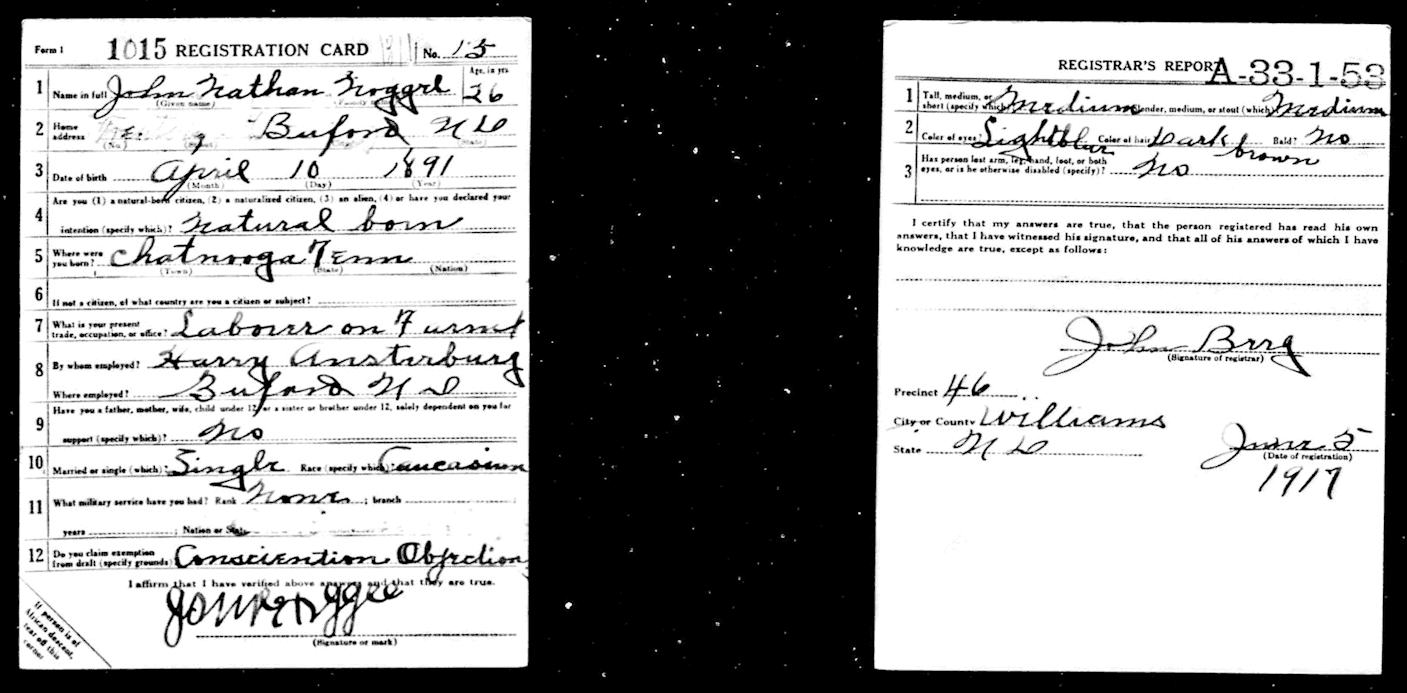 Form 1 1015 REGISTRATION CARD No. 15
1 Name in full John Nathan Noggle Age, in yrs 26
(Given name) (Family name)
2 Home address Buford N D
(No.) (Street) (City) (State)
3 Date of birth April 10 1891
(Month) (Day) (Year)
4 Are you (1) a natural-born citizen, (2) a naturalized citizen, (3) an alien, (4) or have you declared your
intention (specify which)? Natural born
5 Where were you born? Chatnooga Tenn
(Town) (State) (Nation)
6 If not a citizen, of what country are you a citizen or subject?
7 What is your present trade, occupation, or office? Labourer on
8 By whom employed? Harry Ansterburg
Where employed? Buford N D
9 Have you a father, mother, wife, child under 12, or a sister or brother under 12, solely dependent on you for
support (specify which)? No
10 Married or single (which)? Single Race (specify which)? Caucasian
11 What military service have you had? Rank None ; branch
years ; Nation or State
12 Do you claim exemption from draft (specify grounds)? Consciention Objection
I affirm that I have verified above answers and that they are true.
(Signature or mark)
If person is of
African descent,
tear off this
corner
REGISTRAR'S REPORT A-33-1-53
1 Tall, medium, or short (specify which)? Medium Slender, medium, or stout (which)? Medium
2 Color of eyes? Light blue Color of hair? Dark brown Bald? No
3 Has person lost arm, leg, hand, foot, or both
eyes, or is he otherwise disabled (specify)? No
I certify that my answers are true, that the person registered has read his own
answers, that I have witnessed his signature, and that all of his answers of which I have
knowledge are true, except as follows:
John Berg
(Signature of registrar)
Precinct 46
City or County Williams
State N D June 5
(Date of registration)
1917